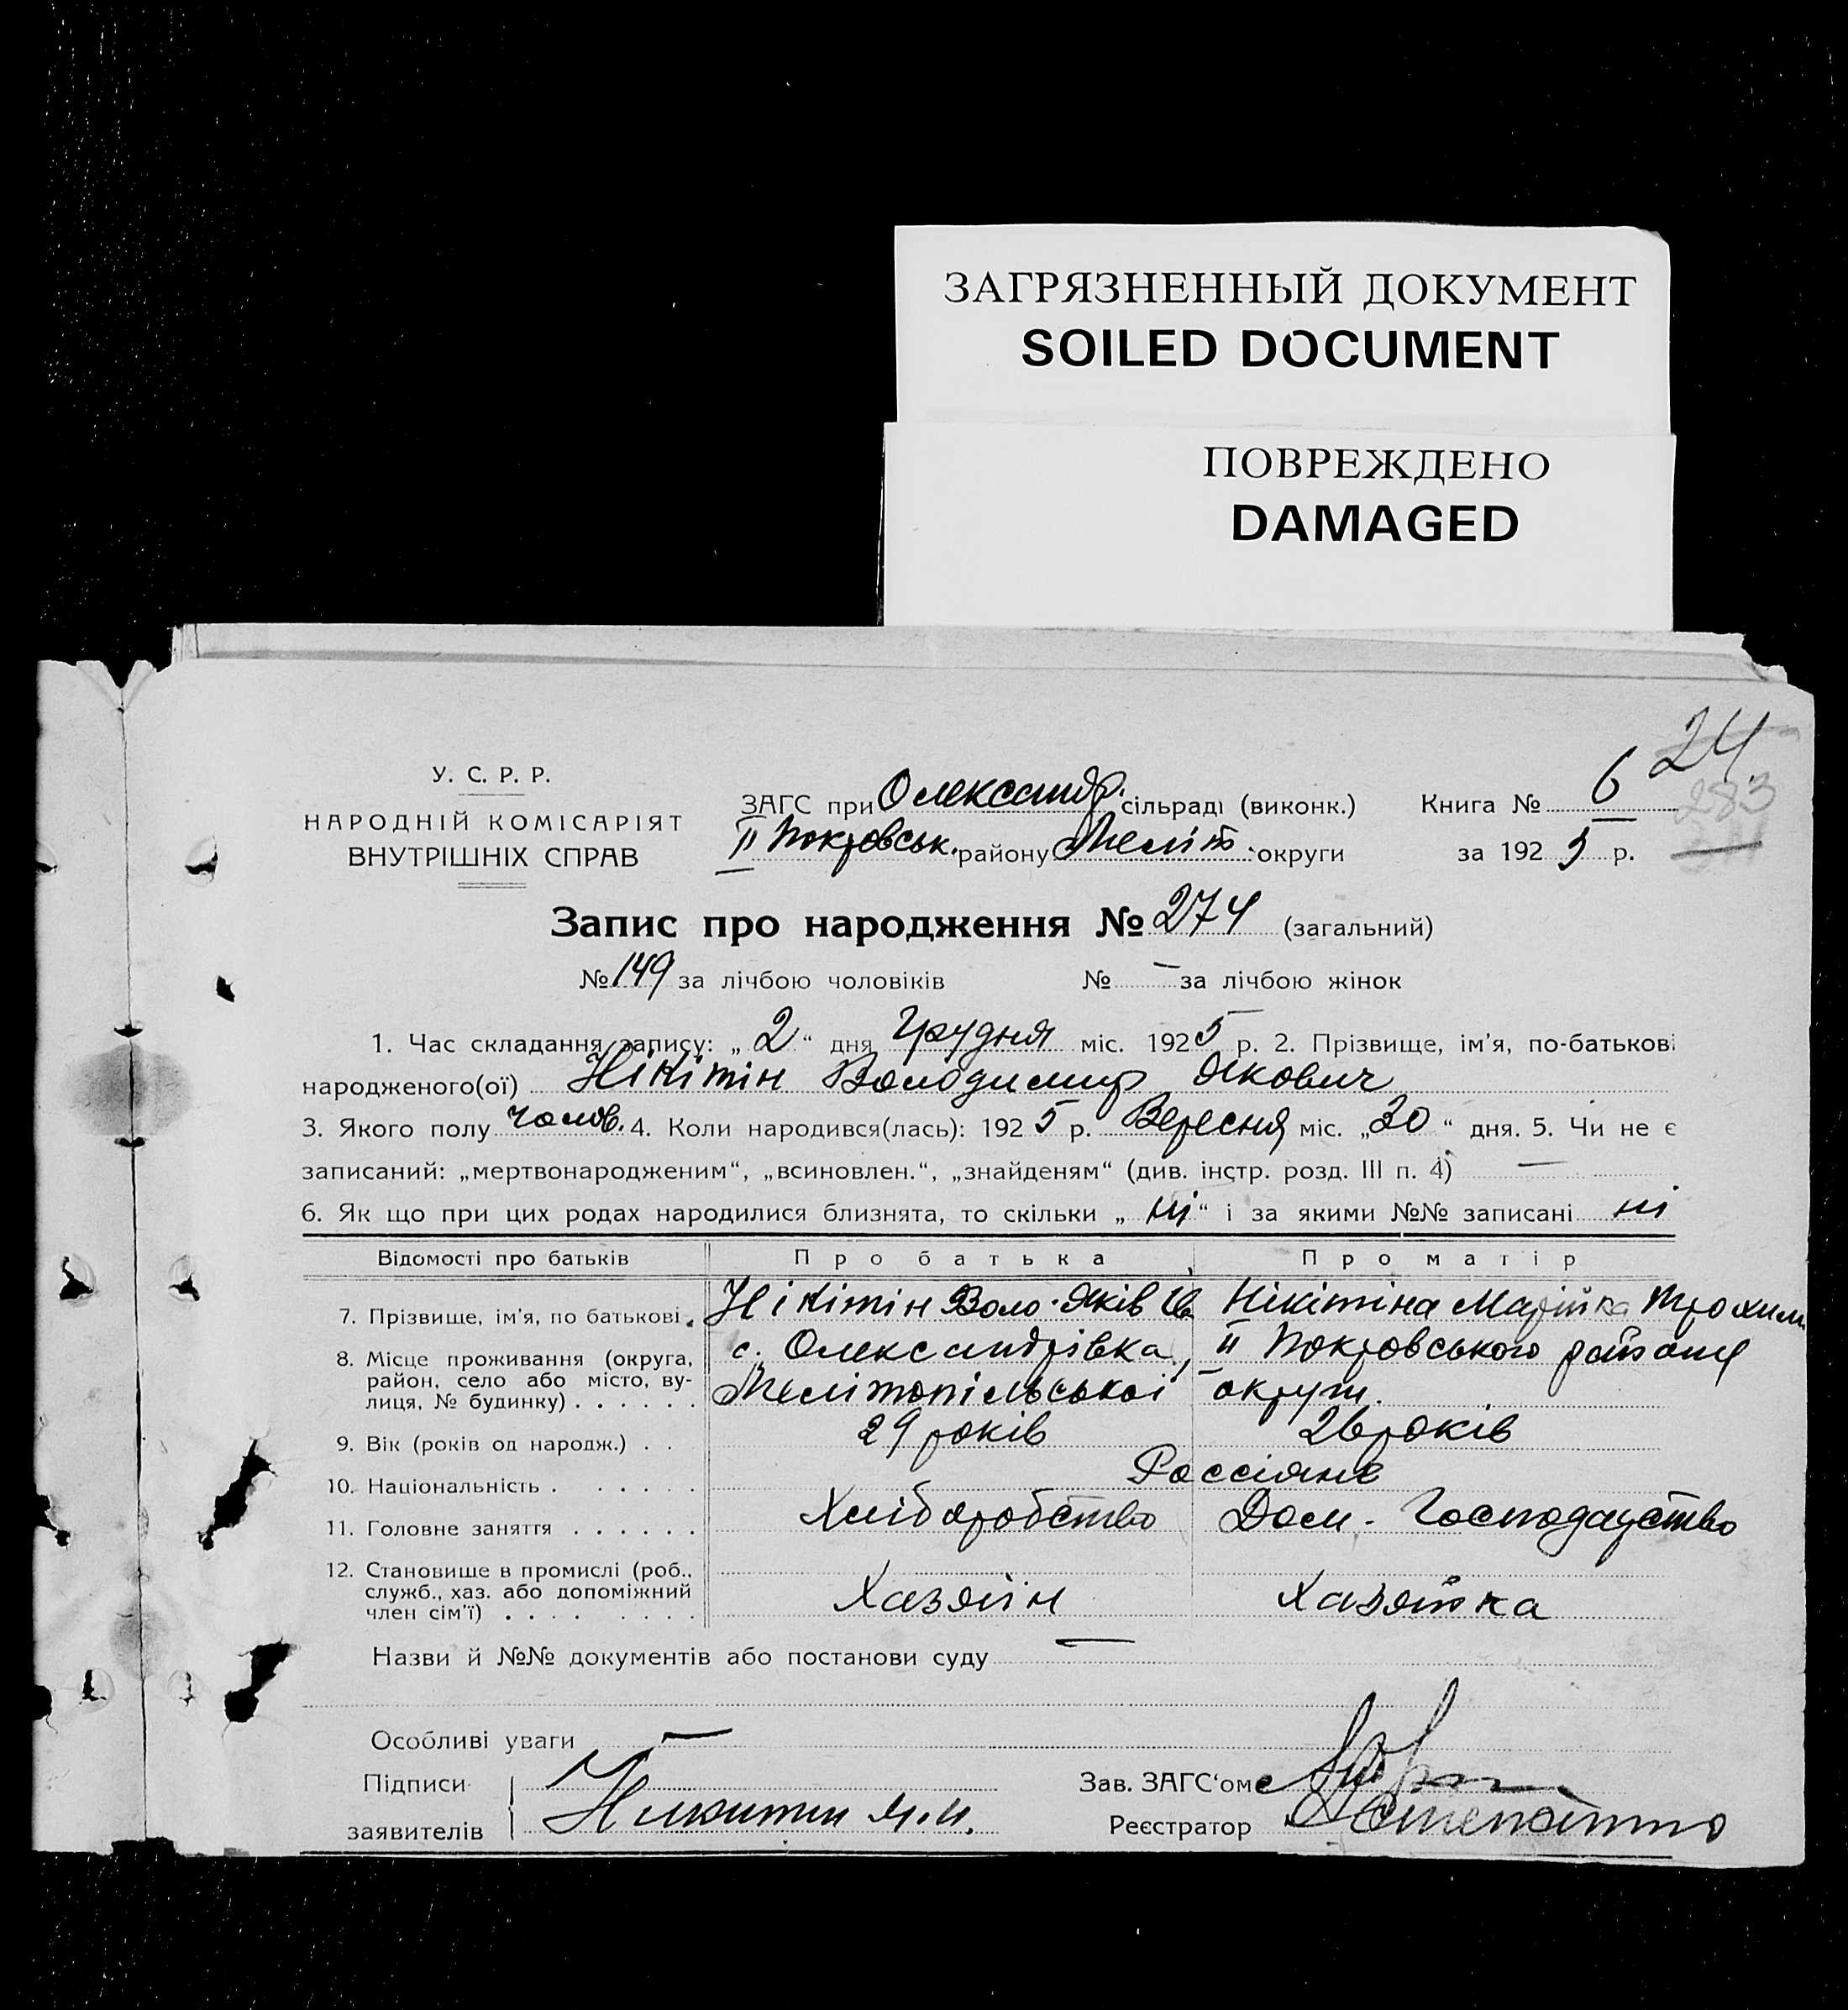 ЗАГРЯЗНЕННЫЙ ДОКУМЕНТ
SOILED DOCUMENT
ПОВРЕЖДЕНО
DAMAGED
24
283
У. С. Р. Р.
НАРОДНІЙ КОМІСАРІЯТ
ВНУТРІШНІХ СПРАВ
ЗАГС при Олександр. сільраді (виконк.) Книга № 6
II Покровськ. району Меліт. округи за 1925 р.
Запис про народження № 274 (загальний)
№ 149 за лічбою чоловіків № — за лічбою жінок
1. Час складання запису: „2“ дня Грудня міс. 1925 р. 2. Прізвище, ім'я, по-батькові
народженого(ої) Нікітін Володимир Якович
3. Якого полу чолов. 4. Коли народився(лась): 1925 р. Вересня міс. „30“ дня. 5. Чи не є
записаний: „мертвонародженим“, „всиновлен.“, „знайденям“ (див. інстр. розд. III п. 4) —
6. Як що при цих родах народилися близнята, то скільки „ні“ і за якими №№ записані ні
Відомості про батьків Про батька Про матір
7. Прізвище, ім'я, по батькові. Нікітін Яків Ів Нікітіна Марійка Трохим.
8. Місце проживання (округа, район, село або місто, вулиця, № будинку) . . . . . .
с. Олександрівка, II Покровського району
Мелітопільської округи.
9. Вік (років од народж.) . . 29 років 26 років
10. Національність . . . . . . Россіяне
11. Головне заняття . . . . . . Хліборобство Дом. Господарство
12. Становище в промислі (роб., служб., хаз. або допоміжний член сім'ї) . . . . . . . . Хазяїн Хазяйка
Назви й №№ документів або постанови суду —
Особливі уваги —
Підписи
заявителів Никитин Я.И.
Зав. ЗАГС'ом
Реєстратор